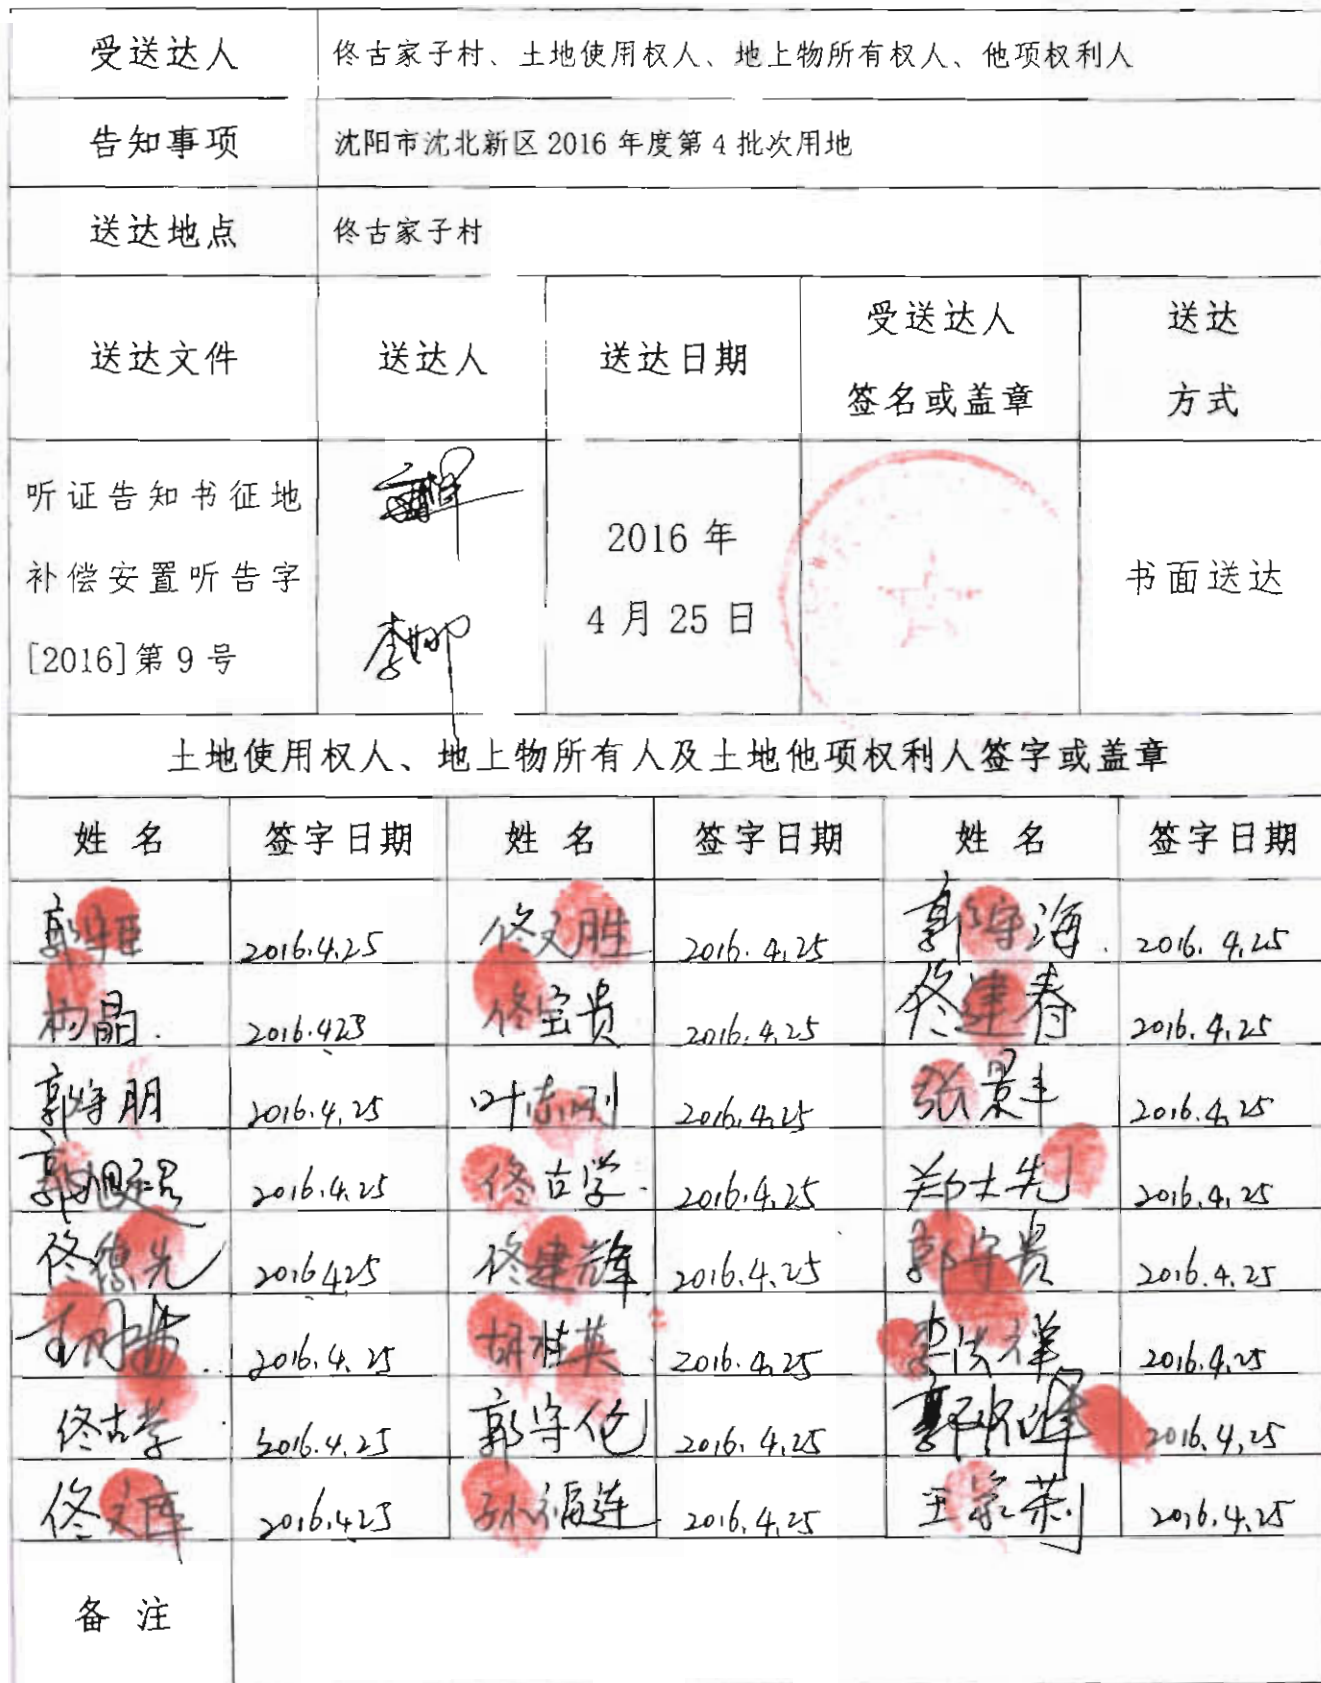 受送达人 佟古家子村、土地使用权人、地上物所有权人、他项权利人
告知事项 沈阳市沈北新区2016年度第4批次用地
送达地点 佟古家子村
送达文件 送达人 送达日期 受送达人签名或盖章 送达方式
听证告知书征地补偿安置听告字[2016]第9号 李娜 2016年4月25日 书面送达
土地使用权人、地上物所有人及土地他项权利人签字或盖章
姓名 签字日期 姓名 签字日期 姓名 签字日期
2016.4.25 佟文胜 2016.4.25 郭守海 2016.4.25
杨晶 2016.425 佟宝贵 2016.4.25 佟建春 2016.4.25
郭守朋 2016.4.25 叶东刚 2016.4.25 张景丰 2016.4.25
2016.4.25 佟古学 2016.4.25 郑士先 2016.4.25
佟德先 2016425 佟建辉 2016.4.25 郭守贵 2016.4.25
2016.4.25 胡桂英 2016.4.25 李洪祥 2016.4.25
佟古学 2016.4.25 郭守伦 2016.4.25 2016.4.25
佟文库 2016.425 孙福连 2016.4.25 王家荣 2016.4.25
备注